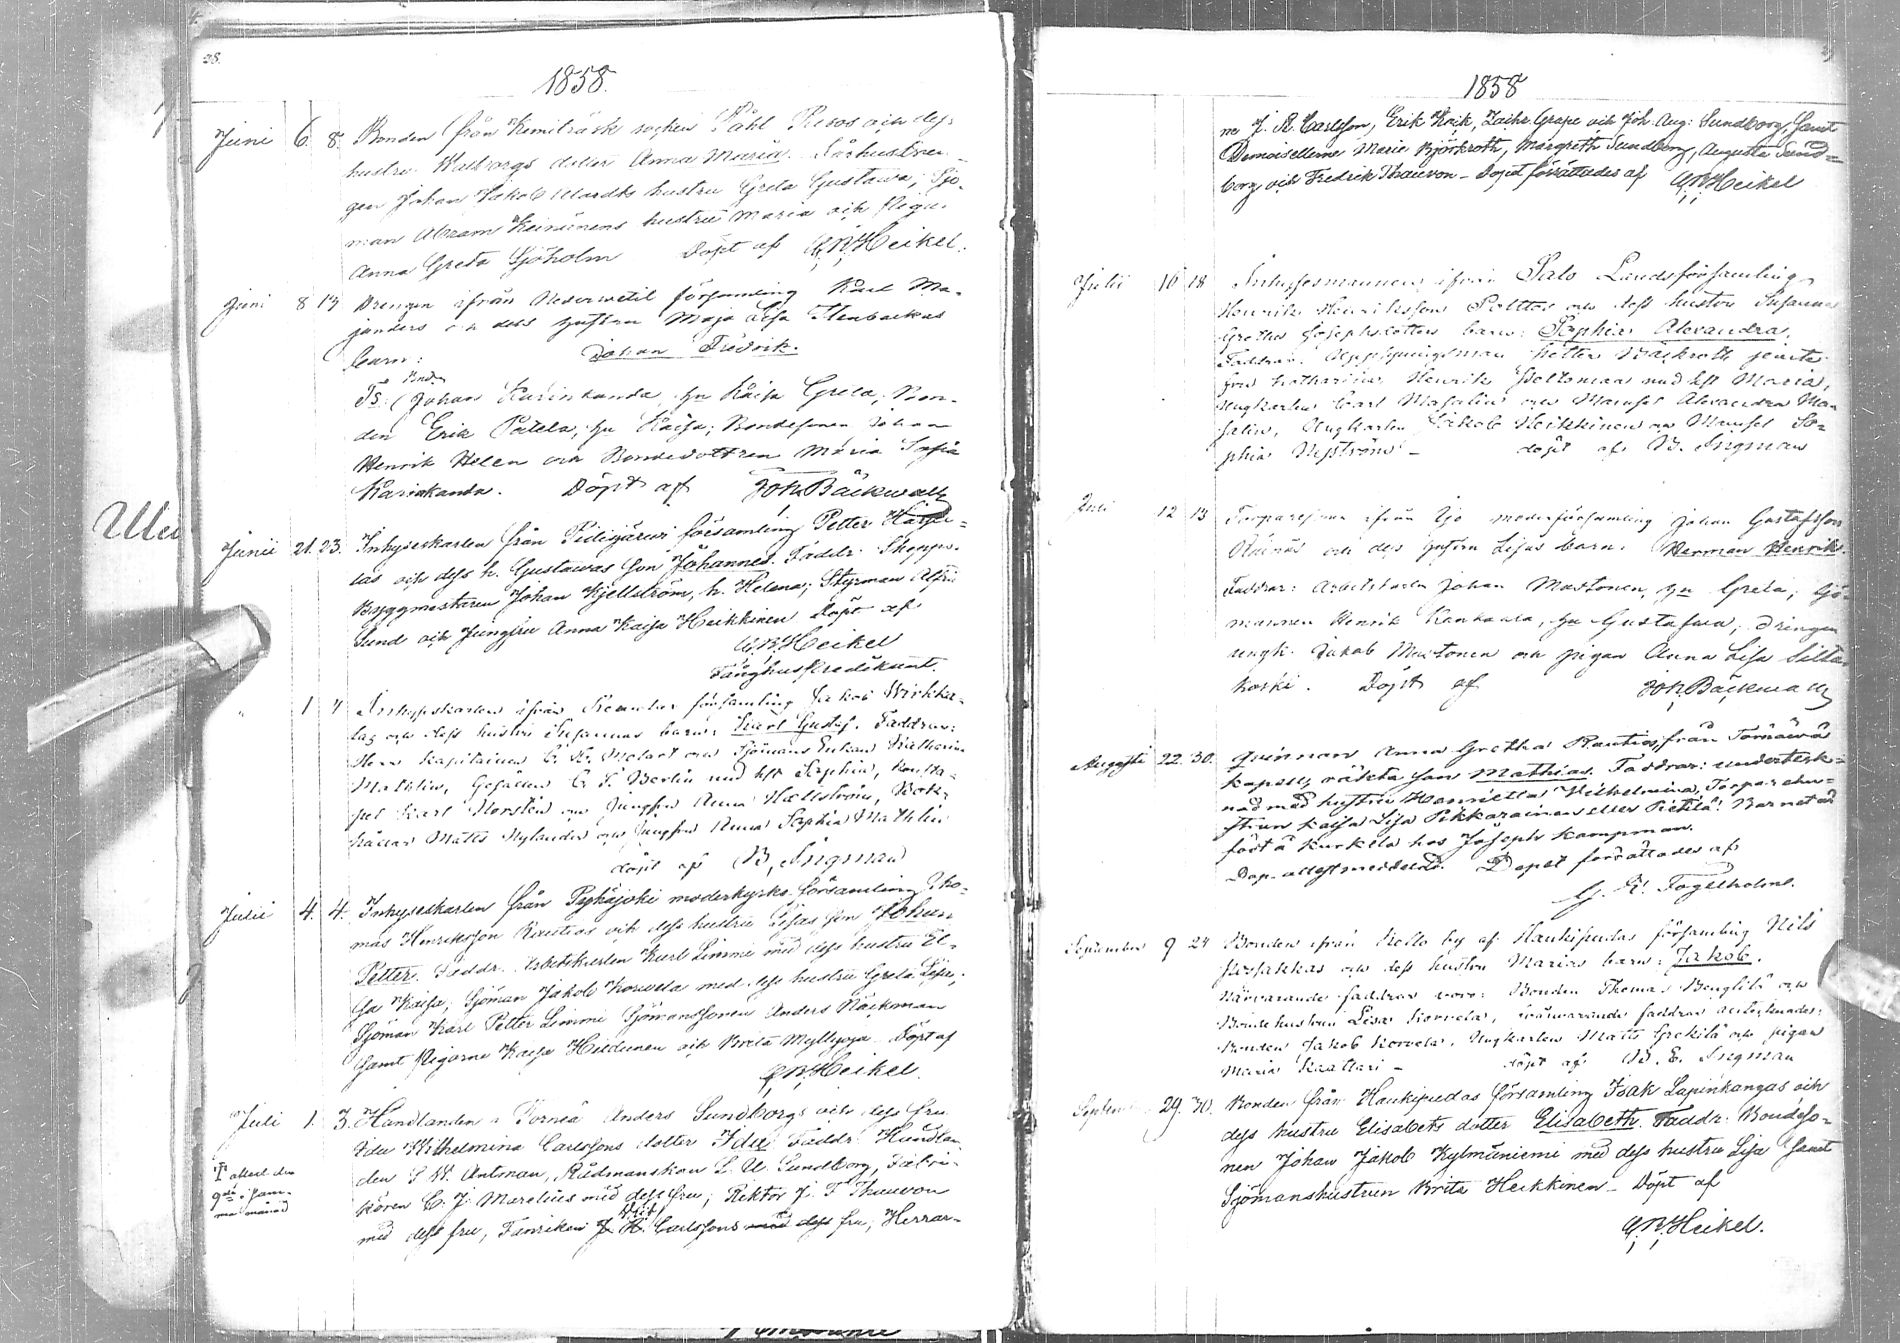 28.
1858.
Juni 6. 8. Bonden från Kemiträsk socken Påhl Pesos och dess
hustru Walborgs dotter Anna Maria.
gen Johan Jakob hustru Greta Gustava, Sjö-
man Abram Keinänens hustru Maria och Pigan
Anna Greta Sjöholm Döpt af Heikel.
Juni 8 14 Drengen ifrån Nederwetil församling Karl Ma-
janders och dess hustru Maja Lisa
barn: Johan Fredrik.
Ts: (Bnd. Johan Karinkanda, hu Kaisa Greta, Bon-
den Erik Patela, hu Kaisa; Bondesonen Johan
Henrik Helen och Bondedottren Maria Sofia
Karinkanda. Döpt af Joh. Bäckwall
Junii 21. 23. Inhyseskarlen från Pidisjärwi församling Petter
las och dess h. Gustavas son Johannes. Faddr: Skepps-
Byggmästaren Johan Kjellström, h. Helena; Styrman Alfr.
Sund och Jungfru Anna Kaisa Heikkinen Döpt af
Heikel
Fänghus Predikant.
1 4 Inhyseskarlen ifrån församling Jakob Wirkka-
las och dess hustru Susannas barn: Karl Gustaf. Faddrar:
Herr Kapitainen och Sjömans Enkan Katharina
Mathlin, Gesällen Berlin med hst Sophia,
Karl Norstén och Jungfru Anna Hällström, Bok-
hållar Matts Nylander och Jungfru Anna Sophia Mathlin
döpt af B. Ingman
Julii 4. 4. Inhyseskarlen från Pyhäjoki moderkyrko församling Tho-
mas Henriksson Rautios och dess hustru Lisas son Johan
Petter. Faddr. Arbetskarlen Karl Limmi med dess hustru El-
sa Kaisa; Sjöman Jakob Kouvela med dess hustru Greta Lisa;
Sjöman Karl Petter Limmi Sjömanssonen Anders Näckman
samt Pigorna Kaisa Hildunen och Brita Myllyoja. Döpt af
Heikel.
Juli 1. 3. Handlanden i Torneå Anders Sundborgs och dess fru
Ida Wilhelmina Carlssons dotter Ida Faddr. Handlan-
den Antman, Rådmanskan L. U. Sundborg, Fabri-
kören C. J. Marelius med dess fru; Rektor J. F. Thauvon
med dess fru, Fänriken J. A. Carlssons med dess fru, Herrar-
attest den
9de i sam-
ma månad
1858
ne J. A. Carlsson, Erik Kack, Zachr. Grape och Joh. Aug: Sundborg, samt
Demoisellerne Maria Björkroth, Margreth Sundborg, Augusta Sund=
borg och Fredrik Thauvon – Dopet förrättades af Heikel
Julii 16 18 Inhysesmannen ifrån Salo Landsförsamling
Henrik Henriksson Polttos och dess hustru Susanna
Gretha Josephsdotters barn: Sophia Alexandra.
Faddrar: Uppsyningsman Petter Björkroth jemte
fru Katharina, Henrik Poltsman med hst Maria,
Ungkarlen Carl Masalin och Mamsel Alexandra Ma-
salin, Ungkarlen Jakob Heikkinen och Mamsel So-
phia Nyström – döpt af B. Ingman
Juli 12 13 Torparesonen ifrån Ijo moderförsamling Johan Gustafsson
Räinäs och des hustru Lisas barn: Herman Henrik.
Faddrar: Arbetskarlen Johan Mastonen, hu Greta; Sjö-
mannen Henrik Kankaala, hu Gustafwa, Drengen
ungk. Jakob Mastonen och pigan Anna Lisa Silta-
koski. Döpt af Joh. Bäckwall
Augusti 22. 30. Qvinnan Anna Gretha Rautios från Törnävä
kapell, oäkta son Mathias. Faddrar: underteck=
nad med hustru Henrietta Wilhelmina, Torparehu=
strun Kaisa Lisa Pikkarainen eller Pietilä. Barnet är
födt å Kurkela hos Joseph Kampman.
Dop-attest meddeld. Dopet förrättades af
G. A. Fogelholm.
September 9 24 Bonden ifrån Kello by af Haukipudas församling Nils
Kesäkkas och dess hustru Marias barn: Jakob.
Närvarande faddrar voro: Bonden Thomas och
Bondehustrun Lisa Korvela, frånvarande faddrar antecknades:
Bonden Jakob Korvela, Ungkarlen Matts och pigan
Maria Kaattari – döpt af B. E. Ingman
September 29. 30. Bonden från Haukipudas församling Isak Lapinkangas och
dess hustru Elisabets dotter Elisabeth. Faddr. Bondeso-
nen Johan Jakob Kylmäniemi med dess hustru Lisa samt
Sjömanshustrun Brita Heikkinen – Döpt af
Heikel.